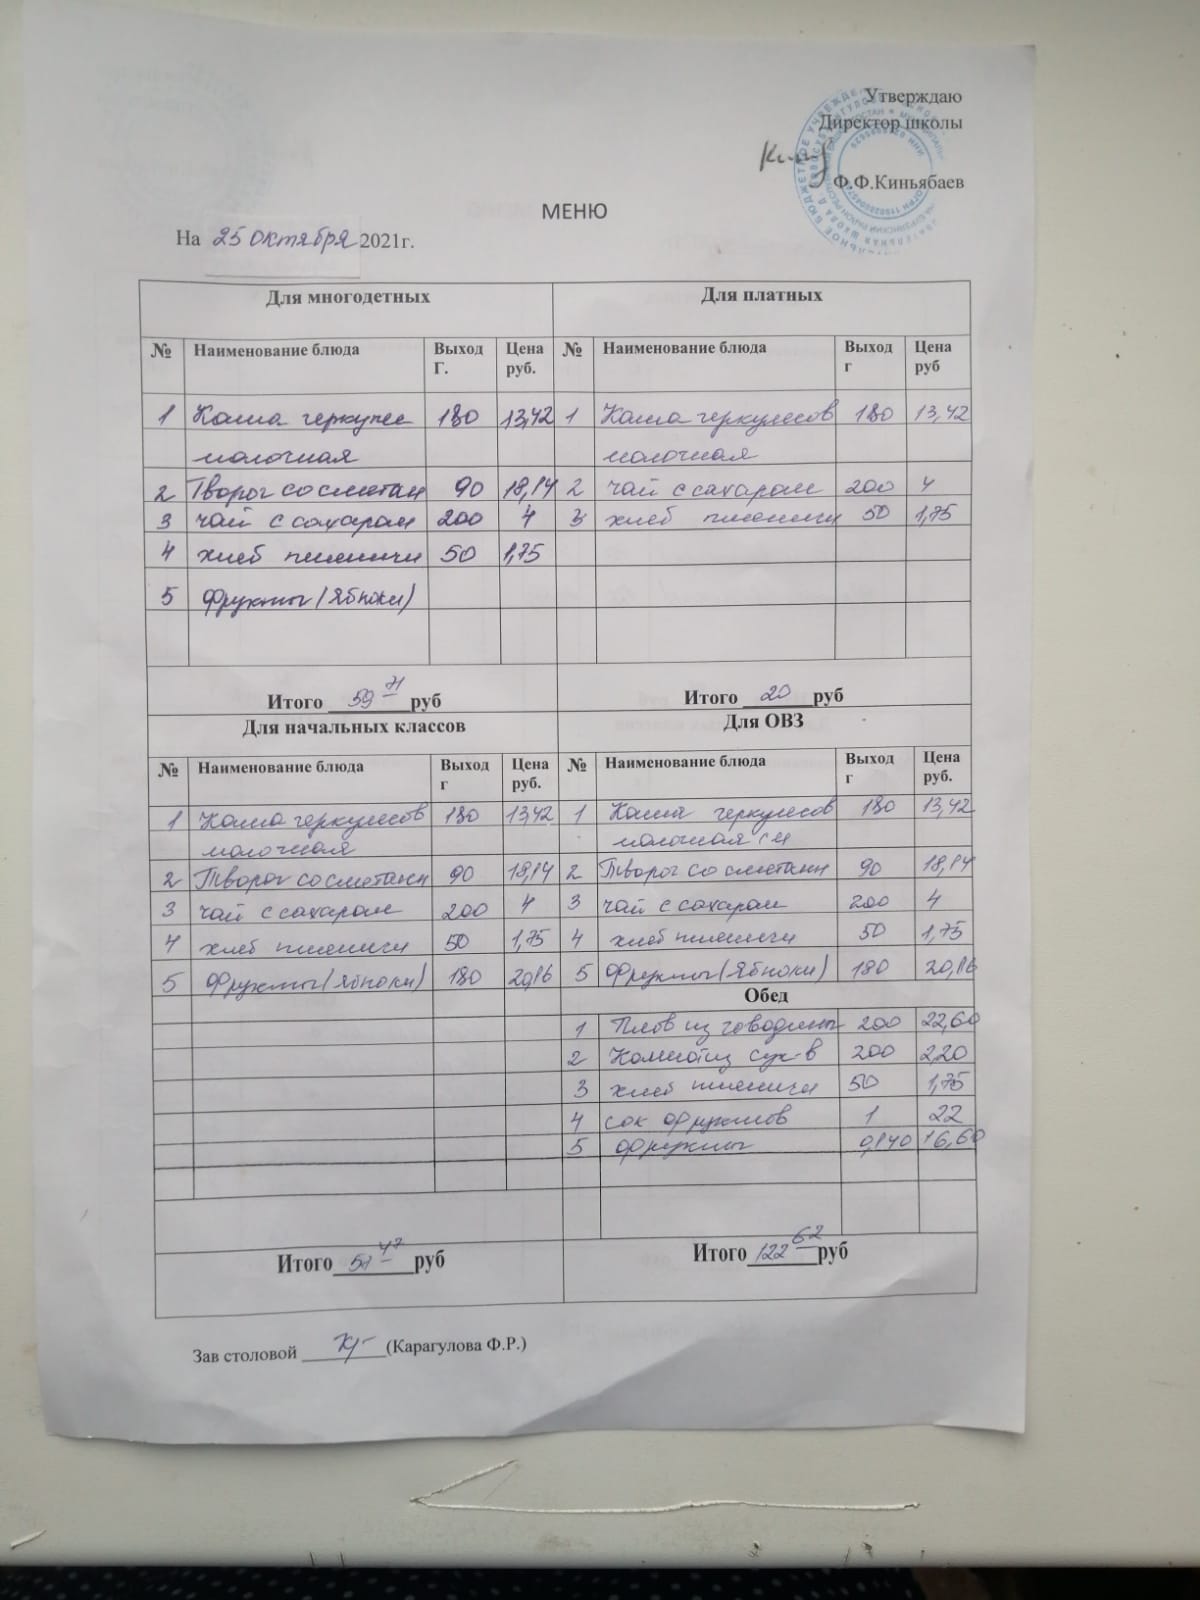 Утверждаю
Директор школы
Ф.Ф.Киньябаев
МЕНЮ
На 25 октября 2021г.
Для многодетных Для платных
№ Наименование блюда Выход Г. Цена руб. № Наименование блюда Выход г Цена руб
1 Каша геркулес 180 13,42 1 Каша геркулесов 180 13,42
молочная молочная
2 Творог со сметан 90 18,14 2 чай с сахаром 200 4
3 чай с сахаром 200 4 3 хлеб пшеничн 50 1,75
4 хлеб пшеничн 50 1,75
5 Фрукты (Яблоки)
Итого 59 71 руб Итого 20 руб
Для начальных классов Для ОВЗ
№ Наименование блюда Выход г Цена руб. № Наименование блюда Выход г Цена руб.
1 Каша геркулесов 180 13,42 1 Каша геркулесов 180 13,42
молочная молочная
2 Творог со сметанн 90 18,14 2 Творог со сметанн 90 18,14
3 чай с сахаром 200 4 3 чай с сахаром 200 4
4 хлеб пшеничн 50 1,75 4 хлеб пшеничн 50 1,75
5 Фрукты (Яблоки) 180 20,16 5 Фрукты (Яблоки) 180 20,16
Обед
1 Плов из говядины 200 22,60
2 Компот из сух-в 200 2,20
3 хлеб пшеничн 50 1,75
4 сок фруктов 1 22
5 фрукты 0,140 16,60
Итого 57 47 руб Итого 122 62 руб
Зав столовой (Карагулова Ф.Р.)